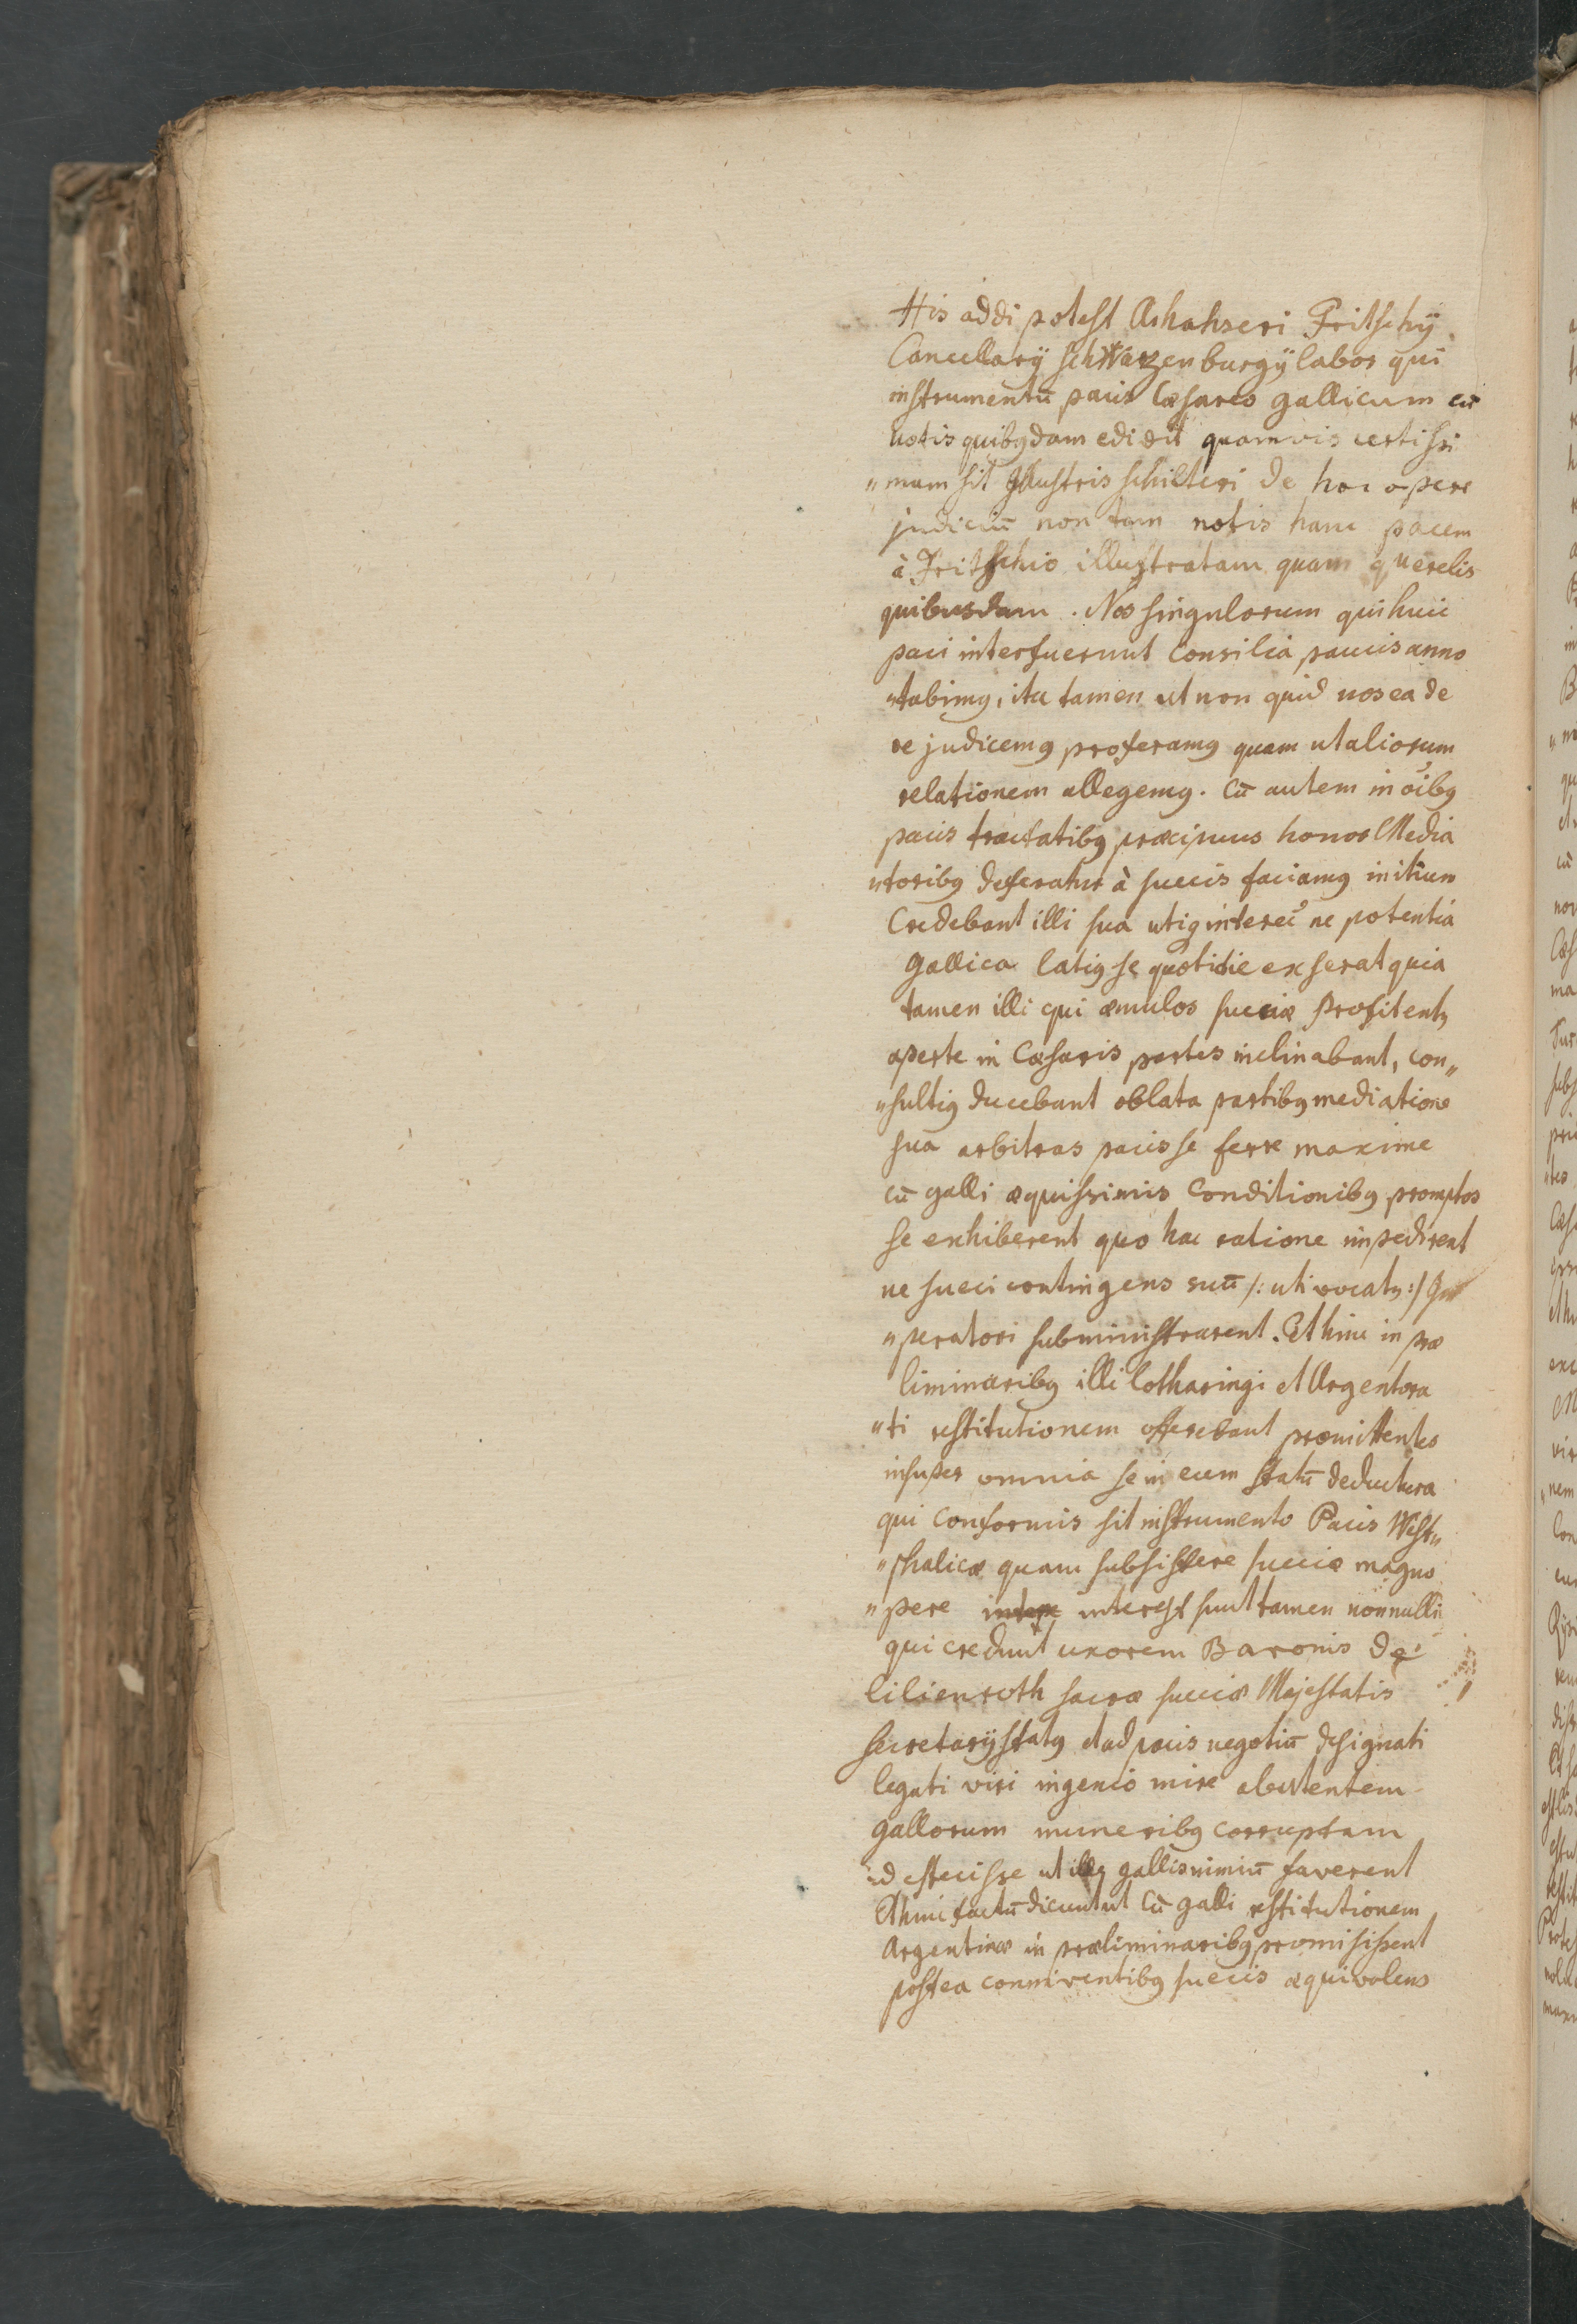 His addi potest Ashahseri Fritschÿ
Cancellarÿ schwarzenburgÿ labor qui
instrumentū pacis Cæsareo gallicum cū
notis quibꝰdam edidit quamvis certissi
„mum sit Illustris schilteri de hoc opere
judiciū non tam notis hanc pacem
à Fritschio illustratam quam querelis
quibusdam. Nos singulorum qui huic
paci interfuerunt Consilia paucis anno
„tabimꝰ, ita tamen ut non quid nos ea de
re judicemꝰ proferamꝰ quam ut aliorum
relationem allegemꝰ. Cū autem in oībꝰ
pacis tractatibꝰ præcipuus honos Media
„toribꝰ deferatur à suecis faciamꝰ initium
Credebant illi sua utiqꝫ interee ne potentia
Gallica latiꝰ se quotidie exserat quia
tamen illi qui æmulos sueciæ Profitentꝰ
aperte in Cæsaris partes inclinabant, con„
„sultiꝰ ducebant oblata partibꝰ mediatione
sua arbitros pacis se ferre maxime
cū galli æquissimis Conditionibꝰ promptos
se exhiberent quo hac ratione impedirent
ne sueci contingens suū /: uti vocatꝰ :/ Im
„peratori subministrarent. Et hinc in præ
liminaribꝰ illi Lotharingi et Argentora
„ti restitutionem offerebant promittentes
insuper omnia se in eum statū deductura
qui conformis sit instrumento Pacis West„
„phalicæ quam subsistere sueciæ magno
„pere interest sunt tamen nonnulli
qui credunt uxorem Baronis de
lilienroth sacræ sueciæ Majestatis
secretarÿ statꝰ et ad pacis negotiū designati
legati viri ingenio mire
gallorum muneribꝰ corruptam
id effecisse ut illꝰ gallis nimiū faverent
Et hinc factū dicunt ut Cū galli restitutionem
Argentinæ in præliminaribꝰ promisissent
postea conniventibꝰ suecis æquivalens